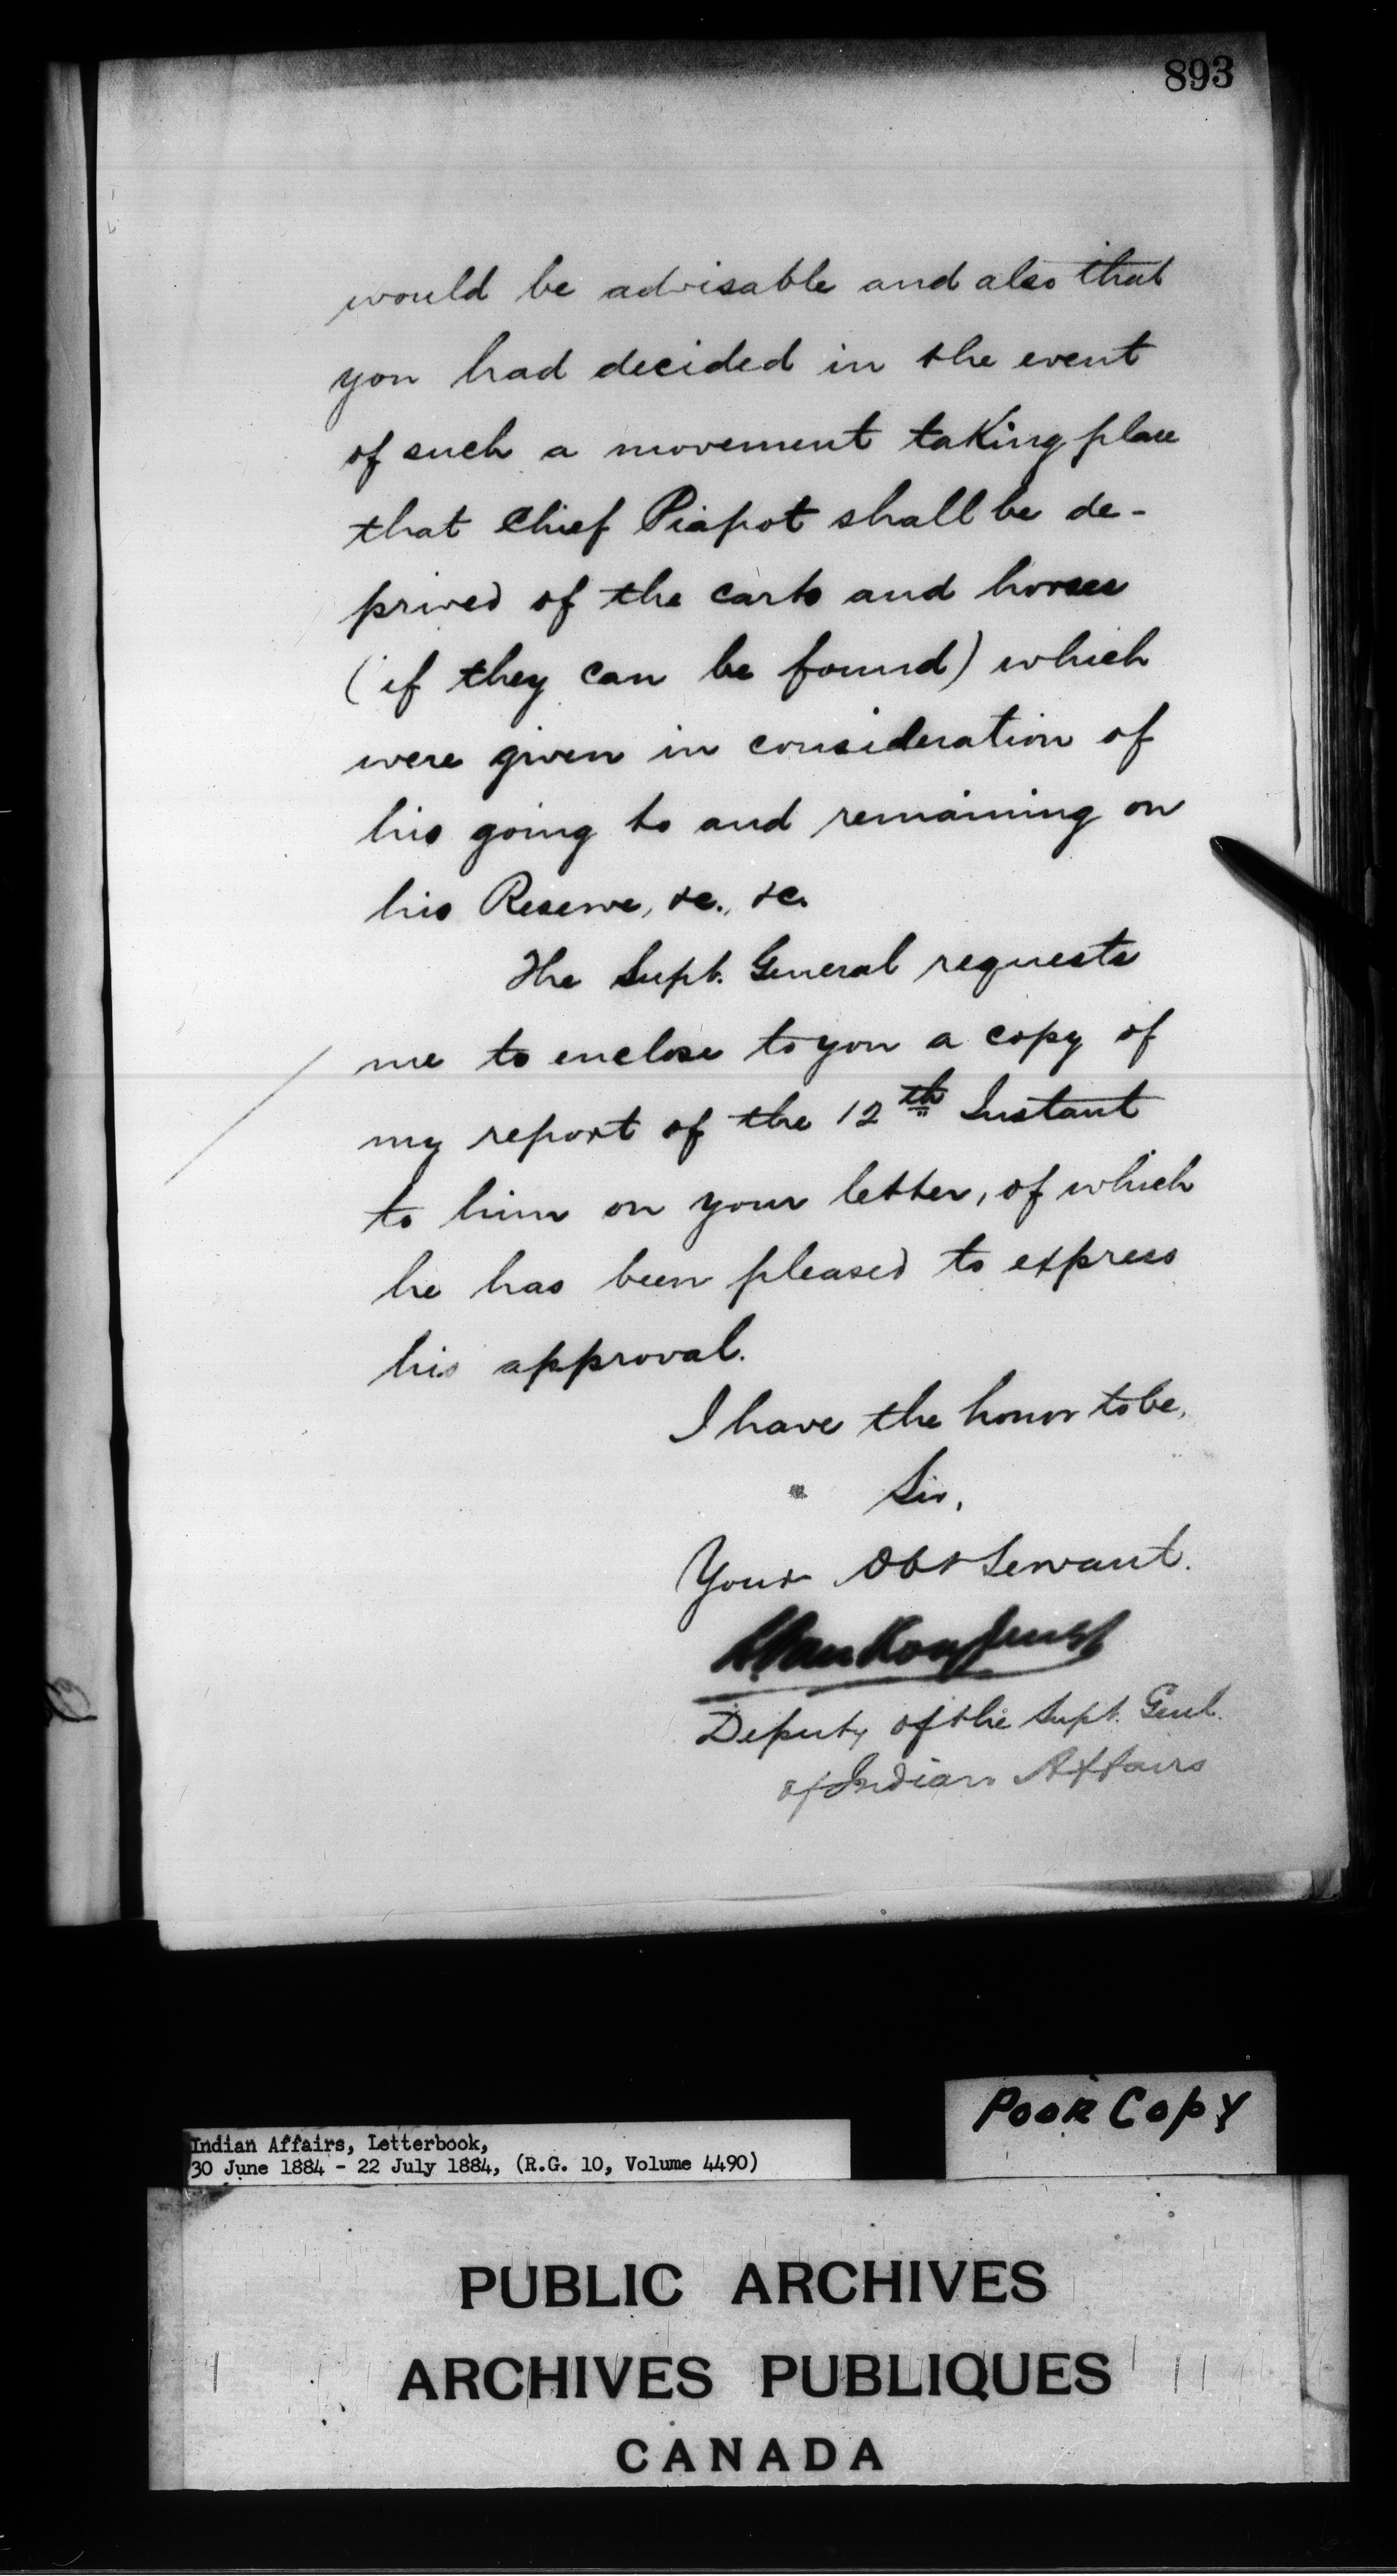 893
would be advisable and also that
you had decided in the event
of such a movement taking place
that Chief Piapot shall be de-
prived of the carts and horses
(if they can be found) which
were given in consideration of
his going to and remaining on
his Reserve, &c., &c.
The Supt. General requests
me to enclose to you a copy of
my report of the 12th Instant
to him on your letter, of which
he has been pleased to express
his approval.
I have the honor to be,
Sir,
Your Obt Servant.
L. VanKoughnet
Deputy of the Supt. Genl.
of Indian Affairs
Poor Copy
Indian Affairs, Letterbook,
30 June 1884 - 22 July 1884, (R.G. 10, Volume 4490)
PUBLIC ARCHIVES
ARCHIVES PUBLIQUES
CANADA